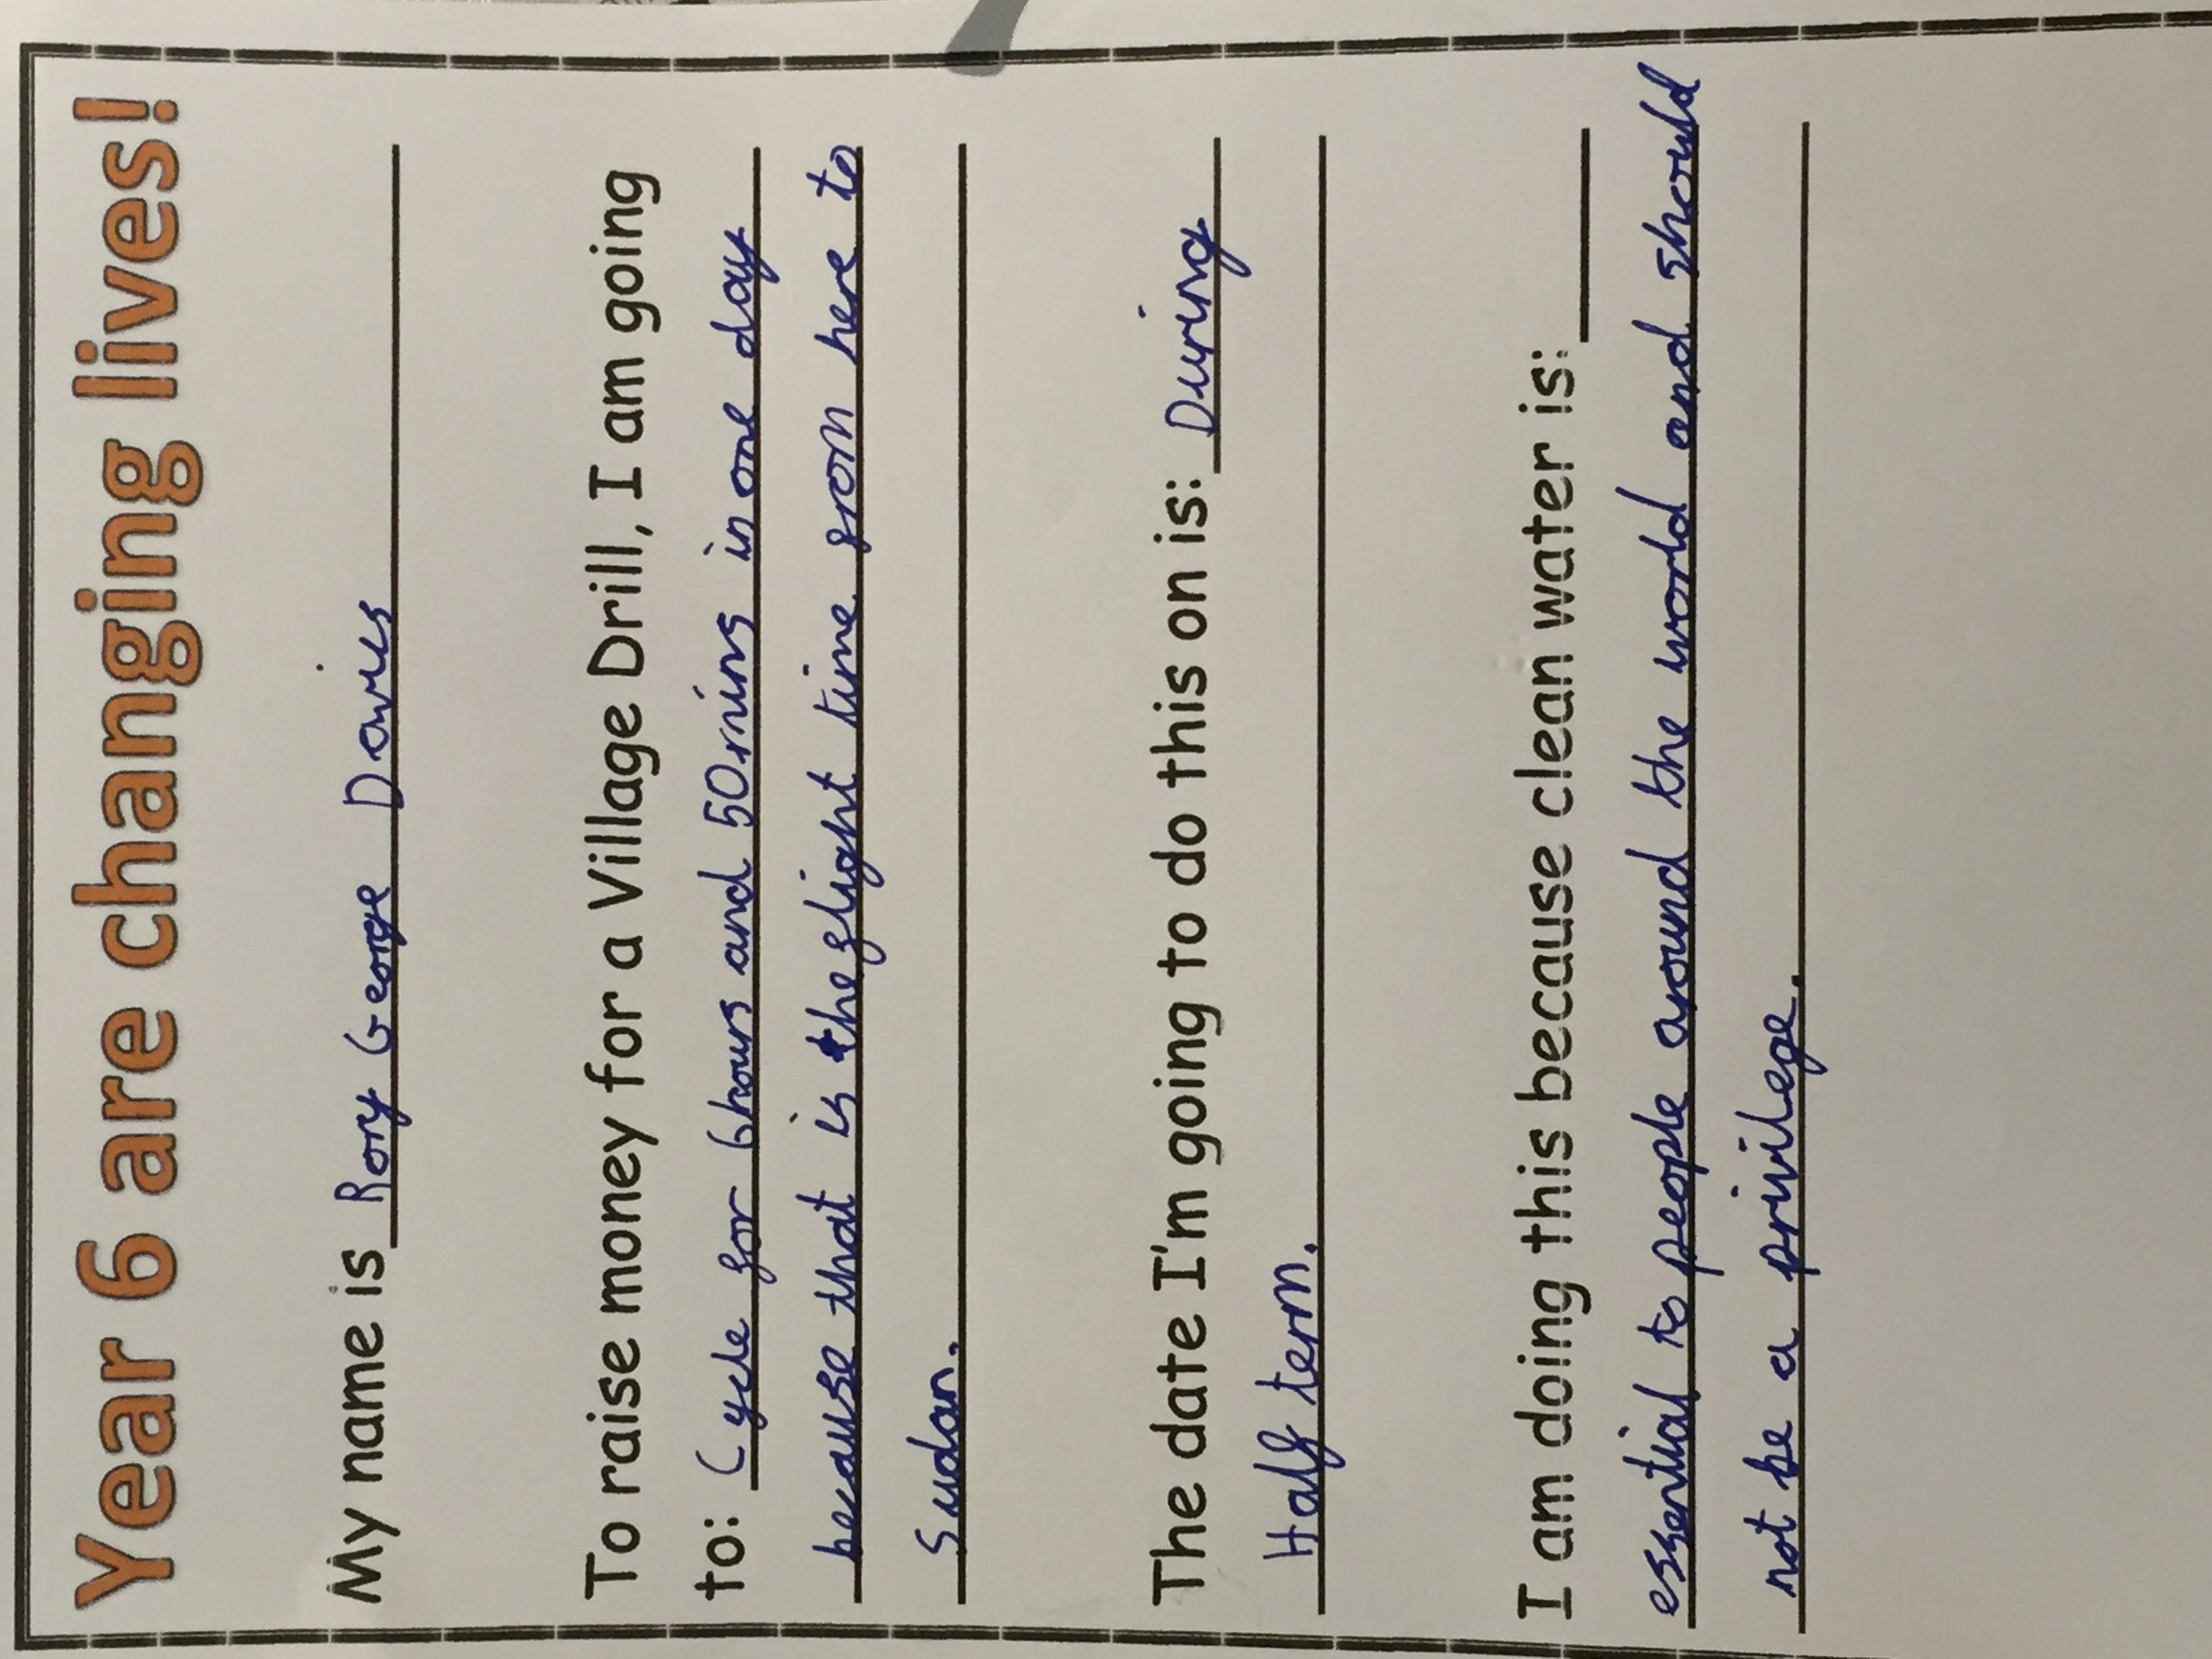 Year 6 are changing lives!
My name is Rory George Davies
To raise money for a Village Drill, I am going
to: Cycle for 6hours and 50mins in one day
because that is the flight time from here to
Sudan.
The date I'm going to do this on is: During
Half term.
I am doing this because clean water is:
essential to people around the world and should
not be a privilege.